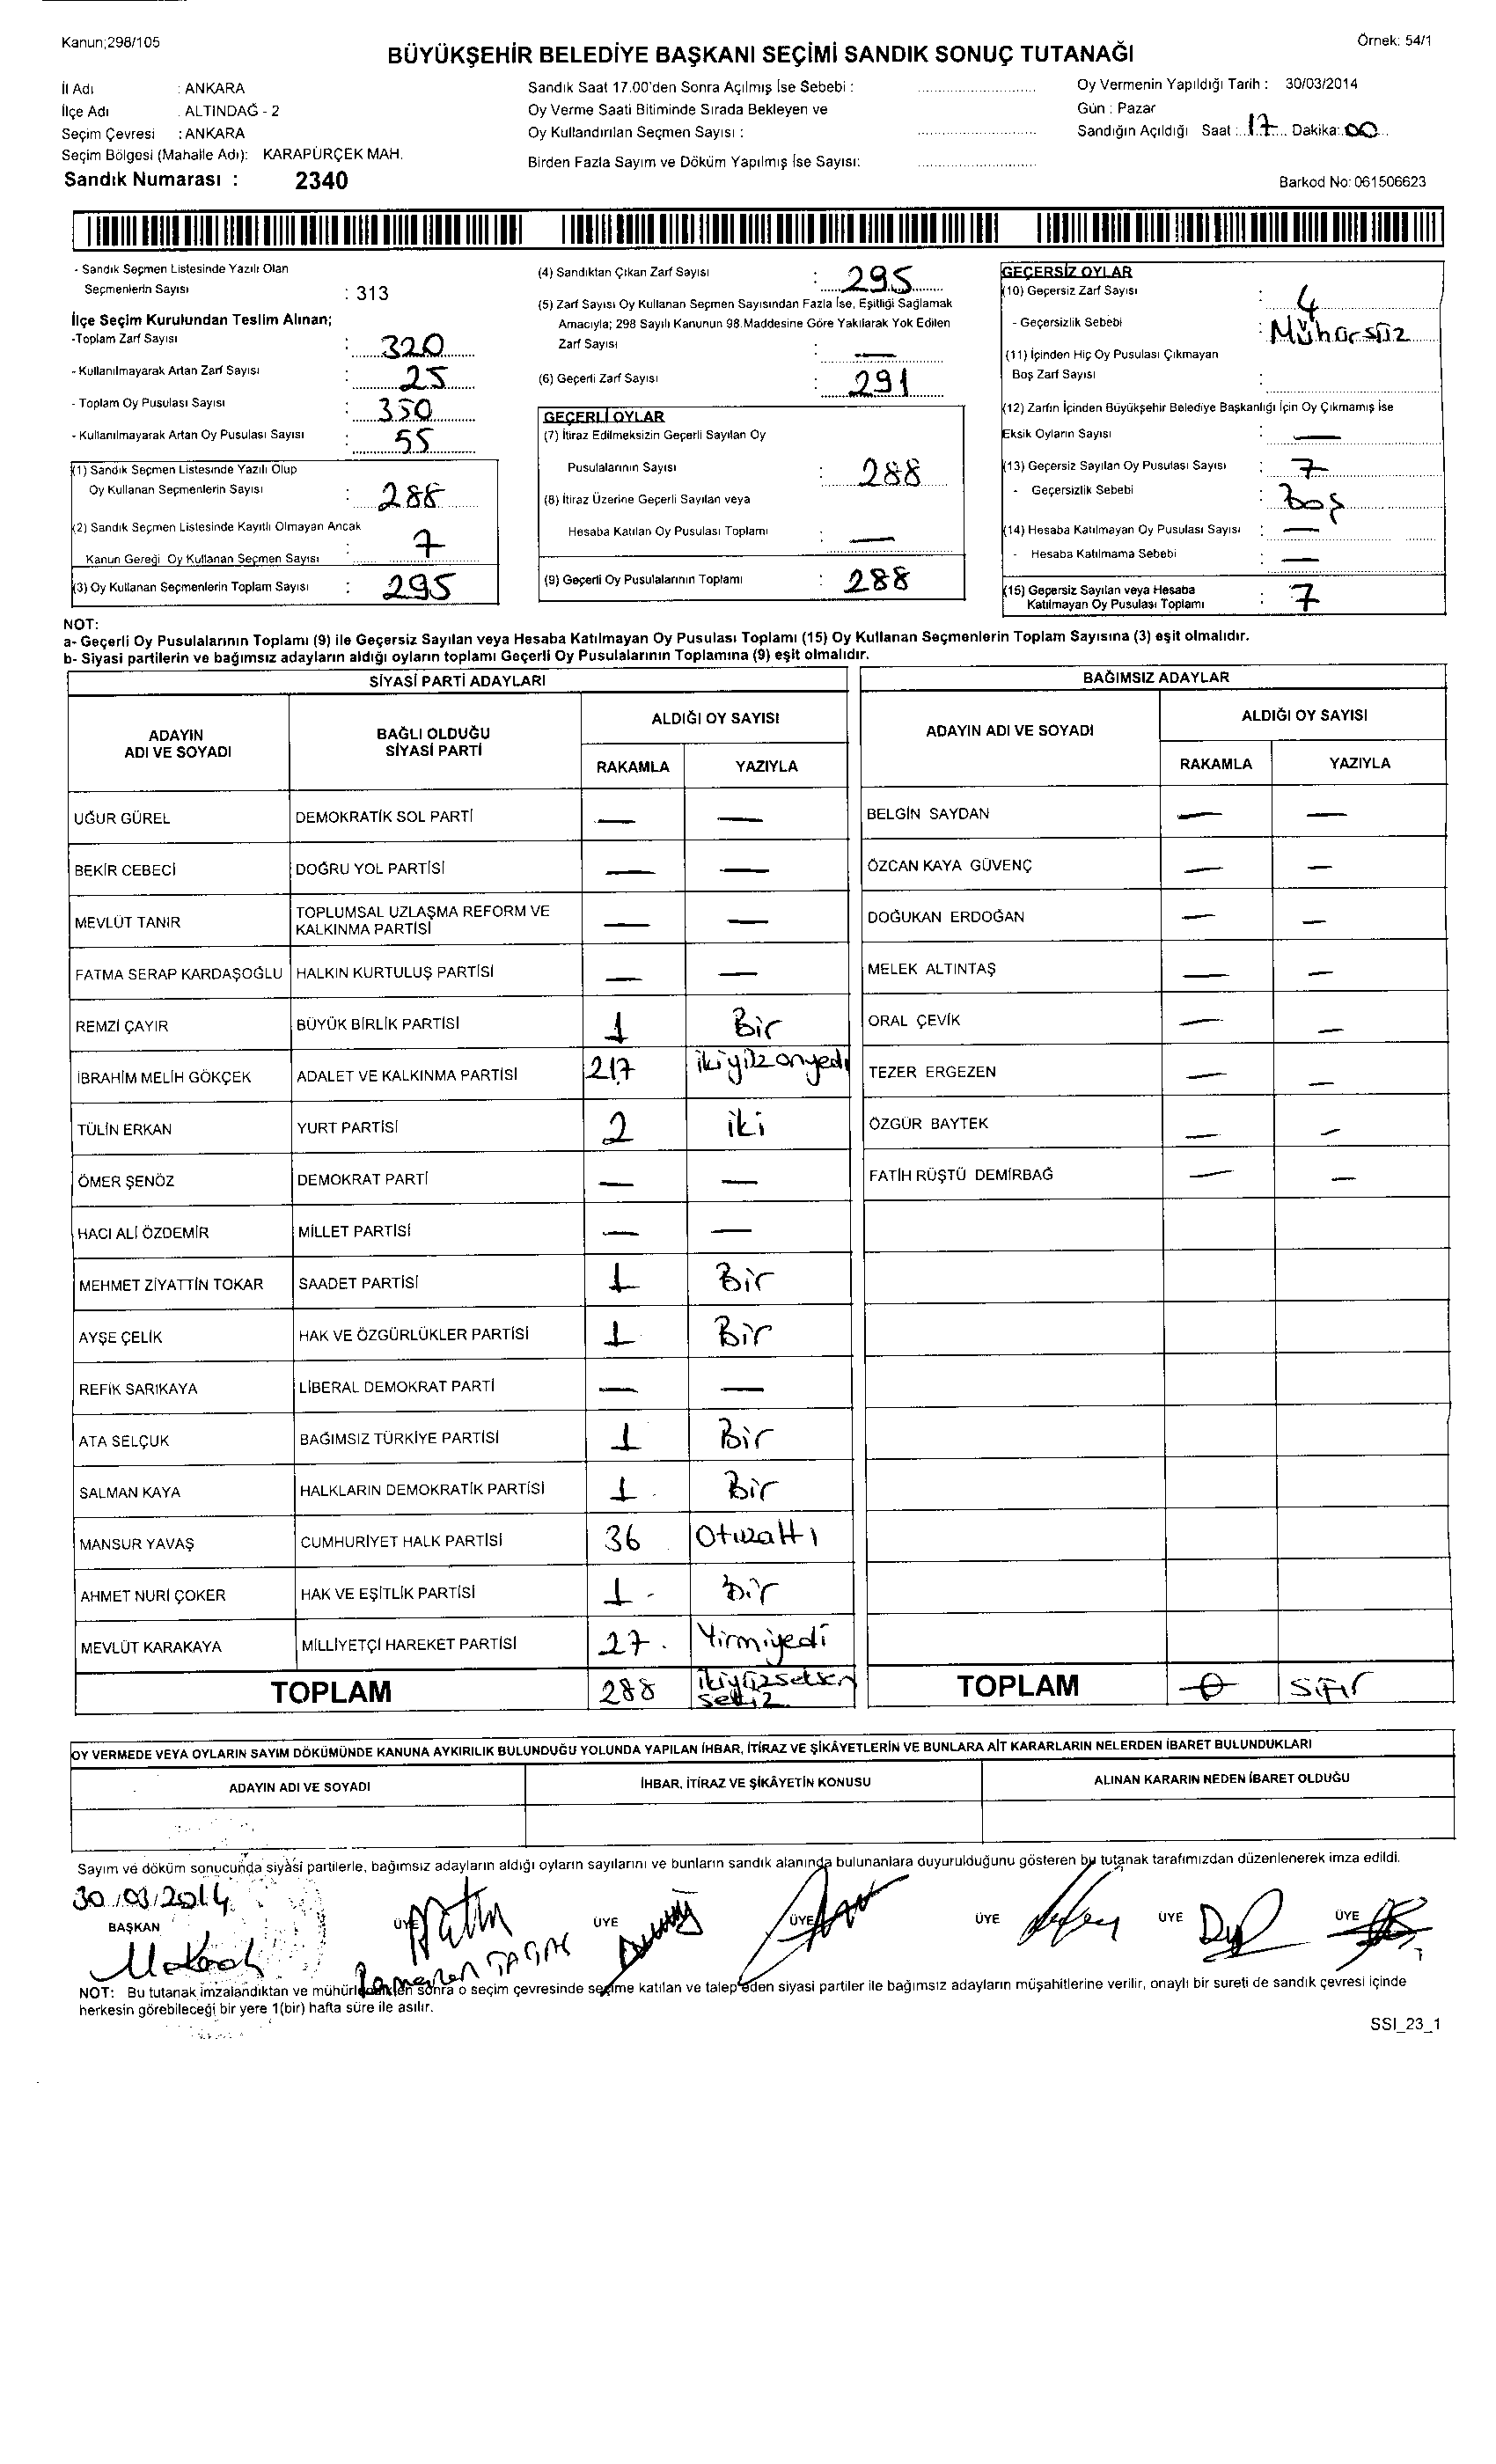 Kanun;298/105
Örnek: 54/1
BÜYÜKŞEHİR BELEDİYE BAŞKANI SEÇİMİ SANDIK SONUÇ TUTANAĞI
İl Adı : ANKARA
İlçe Adı : ALTINDAĞ - 2
Seçim Çevresi : ANKARA
Seçim Bölgesi (Mahalle Adı): KARAPÜRÇEK MAH.
Sandık Numarası : 2340
Sandık Saat 17.00'den Sonra Açılmış İse Sebebi :
Oy Verme Saati Bitiminde Sırada Bekleyen ve
Oy Kullandırılan Seçmen Sayısı :
Birden Fazla Sayım ve Döküm Yapılmış İse Sayısı:
Oy Vermenin Yapıldığı Tarih : 30/03/2014
Gün : Pazar
Sandığın Açıldığı Saat : 17 Dakika: 00
Barkod No: 061506623
- Sandık Seçmen Listesinde Yazılı Olan
Seçmenlerin Sayısı : 313
İlçe Seçim Kurulundan Teslim Alınan;
-Toplam Zarf Sayısı : 320
- Kullanılmayarak Artan Zarf Sayısı : 25
- Toplam Oy Pusulası Sayısı : 350
- Kullanılmayarak Artan Oy Pusulası Sayısı : 55
(1) Sandık Seçmen Listesinde Yazılı Olup
Oy Kullanan Seçmenlerin Sayısı : 288
(2) Sandık Seçmen Listesinde Kayıtlı Olmayan Ancak
Kanun Gereği Oy Kullanan Seçmen Sayısı : 7
(3) Oy Kullanan Seçmenlerin Toplam Sayısı : 295
(4) Sandıktan Çıkan Zarf Sayısı : 295
(5) Zarf Sayısı Oy Kullanan Seçmen Sayısından Fazla İse, Eşitliği Sağlamak
Amacıyla; 298 Sayılı Kanunun 98.Maddesine Göre Yakılarak Yok Edilen
Zarf Sayısı : —
(6) Geçerli Zarf Sayısı : 291
GEÇERLİ OYLAR
(7) İtiraz Edilmeksizin Geçerli Sayılan Oy
Pusulalarının Sayısı : 288
(8) İtiraz Üzerine Geçerli Sayılan veya
Hesaba Katılan Oy Pusulası Toplamı : —
(9) Geçerli Oy Pusulalarının Toplamı : 288
GEÇERSİZ OYLAR
(10) Geçersiz Zarf Sayısı : 4
- Geçersizlik Sebebi : Mühürsüz
(11) İçinden Hiç Oy Pusulası Çıkmayan
Boş Zarf Sayısı :
(12) Zarfın İçinden Büyükşehir Belediye Başkanlığı İçin Oy Çıkmamış İse
Eksik Oyların Sayısı : —
(13) Geçersiz Sayılan Oy Pusulası Sayısı : 7
- Geçersizlik Sebebi : Boş
(14) Hesaba Katılmayan Oy Pusulası Sayısı : —
- Hesaba Katılmama Sebebi : —
(15) Geçersiz Sayılan veya Hesaba
Katılmayan Oy Pusulası Toplamı : 7
NOT:
a- Geçerli Oy Pusulalarının Toplamı (9) ile Geçersiz Sayılan veya Hesaba Katılmayan Oy Pusulası Toplamı (15) Oy Kullanan Seçmenlerin Toplam Sayısına (3) eşit olmalıdır.
b- Siyasi partilerin ve bağımsız adayların aldığı oyların toplamı Geçerli Oy Pusulalarının Toplamına (9) eşit olmalıdır.
SİYASİ PARTİ ADAYLARI
ADAYIN ADI VE SOYADI BAĞLI OLDUĞU SİYASİ PARTİ ALDIĞI OY SAYISI
RAKAMLA YAZIYLA
UĞUR GÜREL DEMOKRATİK SOL PARTİ — —
BEKİR CEBECİ DOĞRU YOL PARTİSİ — —
MEVLÜT TANIR TOPLUMSAL UZLAŞMA REFORM VE KALKINMA PARTİSİ — —
FATMA SERAP KARDAŞOĞLU HALKIN KURTULUŞ PARTİSİ — —
REMZİ ÇAYIR BÜYÜK BİRLİK PARTİSİ 1 Bir
İBRAHİM MELİH GÖKÇEK ADALET VE KALKINMA PARTİSİ 217 ikiyüzonyedi
TÜLİN ERKAN YURT PARTİSİ 2 iki
ÖMER ŞENÖZ DEMOKRAT PARTİ — —
HACI ALİ ÖZDEMİR MİLLET PARTİSİ — —
MEHMET ZİYATTİN TOKAR SAADET PARTİSİ 1 Bir
AYŞE ÇELİK HAK VE ÖZGÜRLÜKLER PARTİSİ 1 Bir
REFİK SARIKAYA LİBERAL DEMOKRAT PARTİ — —
ATA SELÇUK BAĞIMSIZ TÜRKİYE PARTİSİ 1 Bir
SALMAN KAYA HALKLARIN DEMOKRATİK PARTİSİ 1 Bir
MANSUR YAVAŞ CUMHURİYET HALK PARTİSİ 36 Otuzaltı
AHMET NURİ ÇOKER HAK VE EŞİTLİK PARTİSİ 1 bir
MEVLÜT KARAKAYA MİLLİYETÇİ HAREKET PARTİSİ 27 Yirmiyedi
TOPLAM 288 ikiyüzseksen sekiz
BAĞIMSIZ ADAYLAR
ADAYIN ADI VE SOYADI ALDIĞI OY SAYISI
RAKAMLA YAZIYLA
BELGİN SAYDAN — —
ÖZCAN KAYA GÜVENÇ — —
DOĞUKAN ERDOĞAN — —
MELEK ALTINTAŞ — —
ORAL ÇEVİK — —
TEZER ERGEZEN — —
ÖZGÜR BAYTEK — —
FATİH RÜŞTÜ DEMİRBAĞ — —
TOPLAM 0 sıfır
OY VERMEDE VEYA OYLARIN SAYIM DÖKÜMÜNDE KANUNA AYKIRILIK BULUNDUĞU YOLUNDA YAPILAN İHBAR, İTİRAZ VE ŞİKÂYETLERİN VE BUNLARA AİT KARARLARIN NELERDEN İBARET BULUNDUKLARI
ADAYIN ADI VE SOYADI İHBAR, İTİRAZ VE ŞİKÂYETİN KONUSU ALINAN KARARIN NEDEN İBARET OLDUĞU
Sayım ve döküm sonucunda siyasi partilerle, bağımsız adayların aldığı oyların sayılarını ve bunların sandık alanında bulunanlara duyurulduğunu gösteren bu tutanak tarafımızdan düzenlenerek imza edildi.
30/03/2014
BAŞKAN ÜYE ÜYE ÜYE ÜYE ÜYE ÜYE
NOT: Bu tutanak imzalandıktan ve mühürlendikten sonra o seçim çevresinde seçime katılan ve talep eden siyasi partiler ile bağımsız adayların müşahitlerine verilir, onaylı bir sureti de sandık çevresi içinde
herkesin görebileceği bir yere 1(bir) hafta süre ile asılır.
SSI_23_1